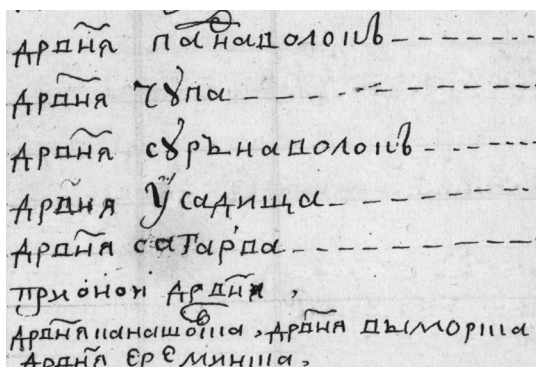 дрвн҃я па наволокъ
дрвн҃я чꙋпа
дрвн҃я сꙋрьнаволокъ
дрвн҃я ꙋсадища
дрвн҃я сагарва
при онои дрвн҃я,
дрвн҃я панашовка, дрвн҃я выморка
дрвн҃я ереминка,